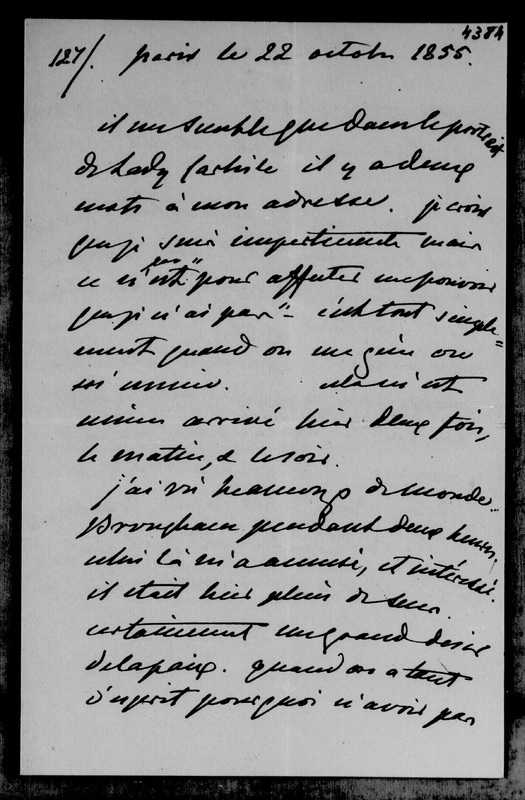 4384
127/. paris le 22 octobre 1855.
il me semble que dans le portrait
de Lady Carlisle il y a deux
mots à mon adresse. je crois
que je suis impertinente mais
ce n'est pas "pour affecter un pouvoir
que je n'ai pas" - c'est tout simple=
ment quand on me gène ou
m'ennuie. cela m'est
même arrivé hier deux fois,
le matin, & le soir.
j'ai vu beaucoup de monde.
Brougham pendant deux heures.
celui là m'a amusée, et intéressée.
il était hier plein de sens.
certainement un grand désir
de la paix. quand on a tant
d'esprit pourquoi n'avoir pas